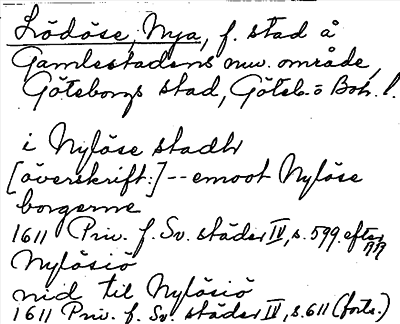 Lödöse, Nya, f. stad å
Gamlestadens nuv. område,
Göteborgs stad, Göteb. o Boh. l.
i Nylöse stadh
[överskrift:] -- emoot Nylöse
borgerne
1611 Priv. f. Sv. städer IV, s. 599. efter
Nylösiö
nid til Nylösiö
1611 Priv. f. Sv. städer IV, s. 611 (forts.)